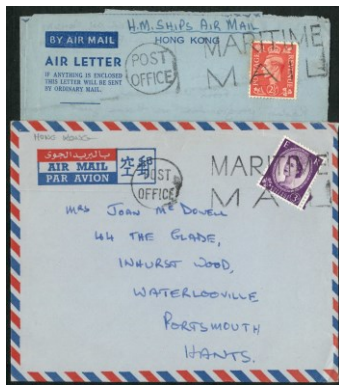 H.M. SHIPS AIR MAIL
BY AIR MAIL
HONG KONG
AIR LETTER
IF ANYTHING IS ENCLOSED
THIS LETTER WILL BE SENT
BY ORDINARY MAIL.
POST
OFFICE
MARITIME
MAIL
HONG KONG
بالبريد الجوى
AIR MAIL
PAR AVION
POST
OFFICE
MARITIME
MAIL
Mrs Joan McDowell
44 THE GLADE,
INHURST WOOD,
WATERLOOVILLE
PORTSMOUTH
HANTS.